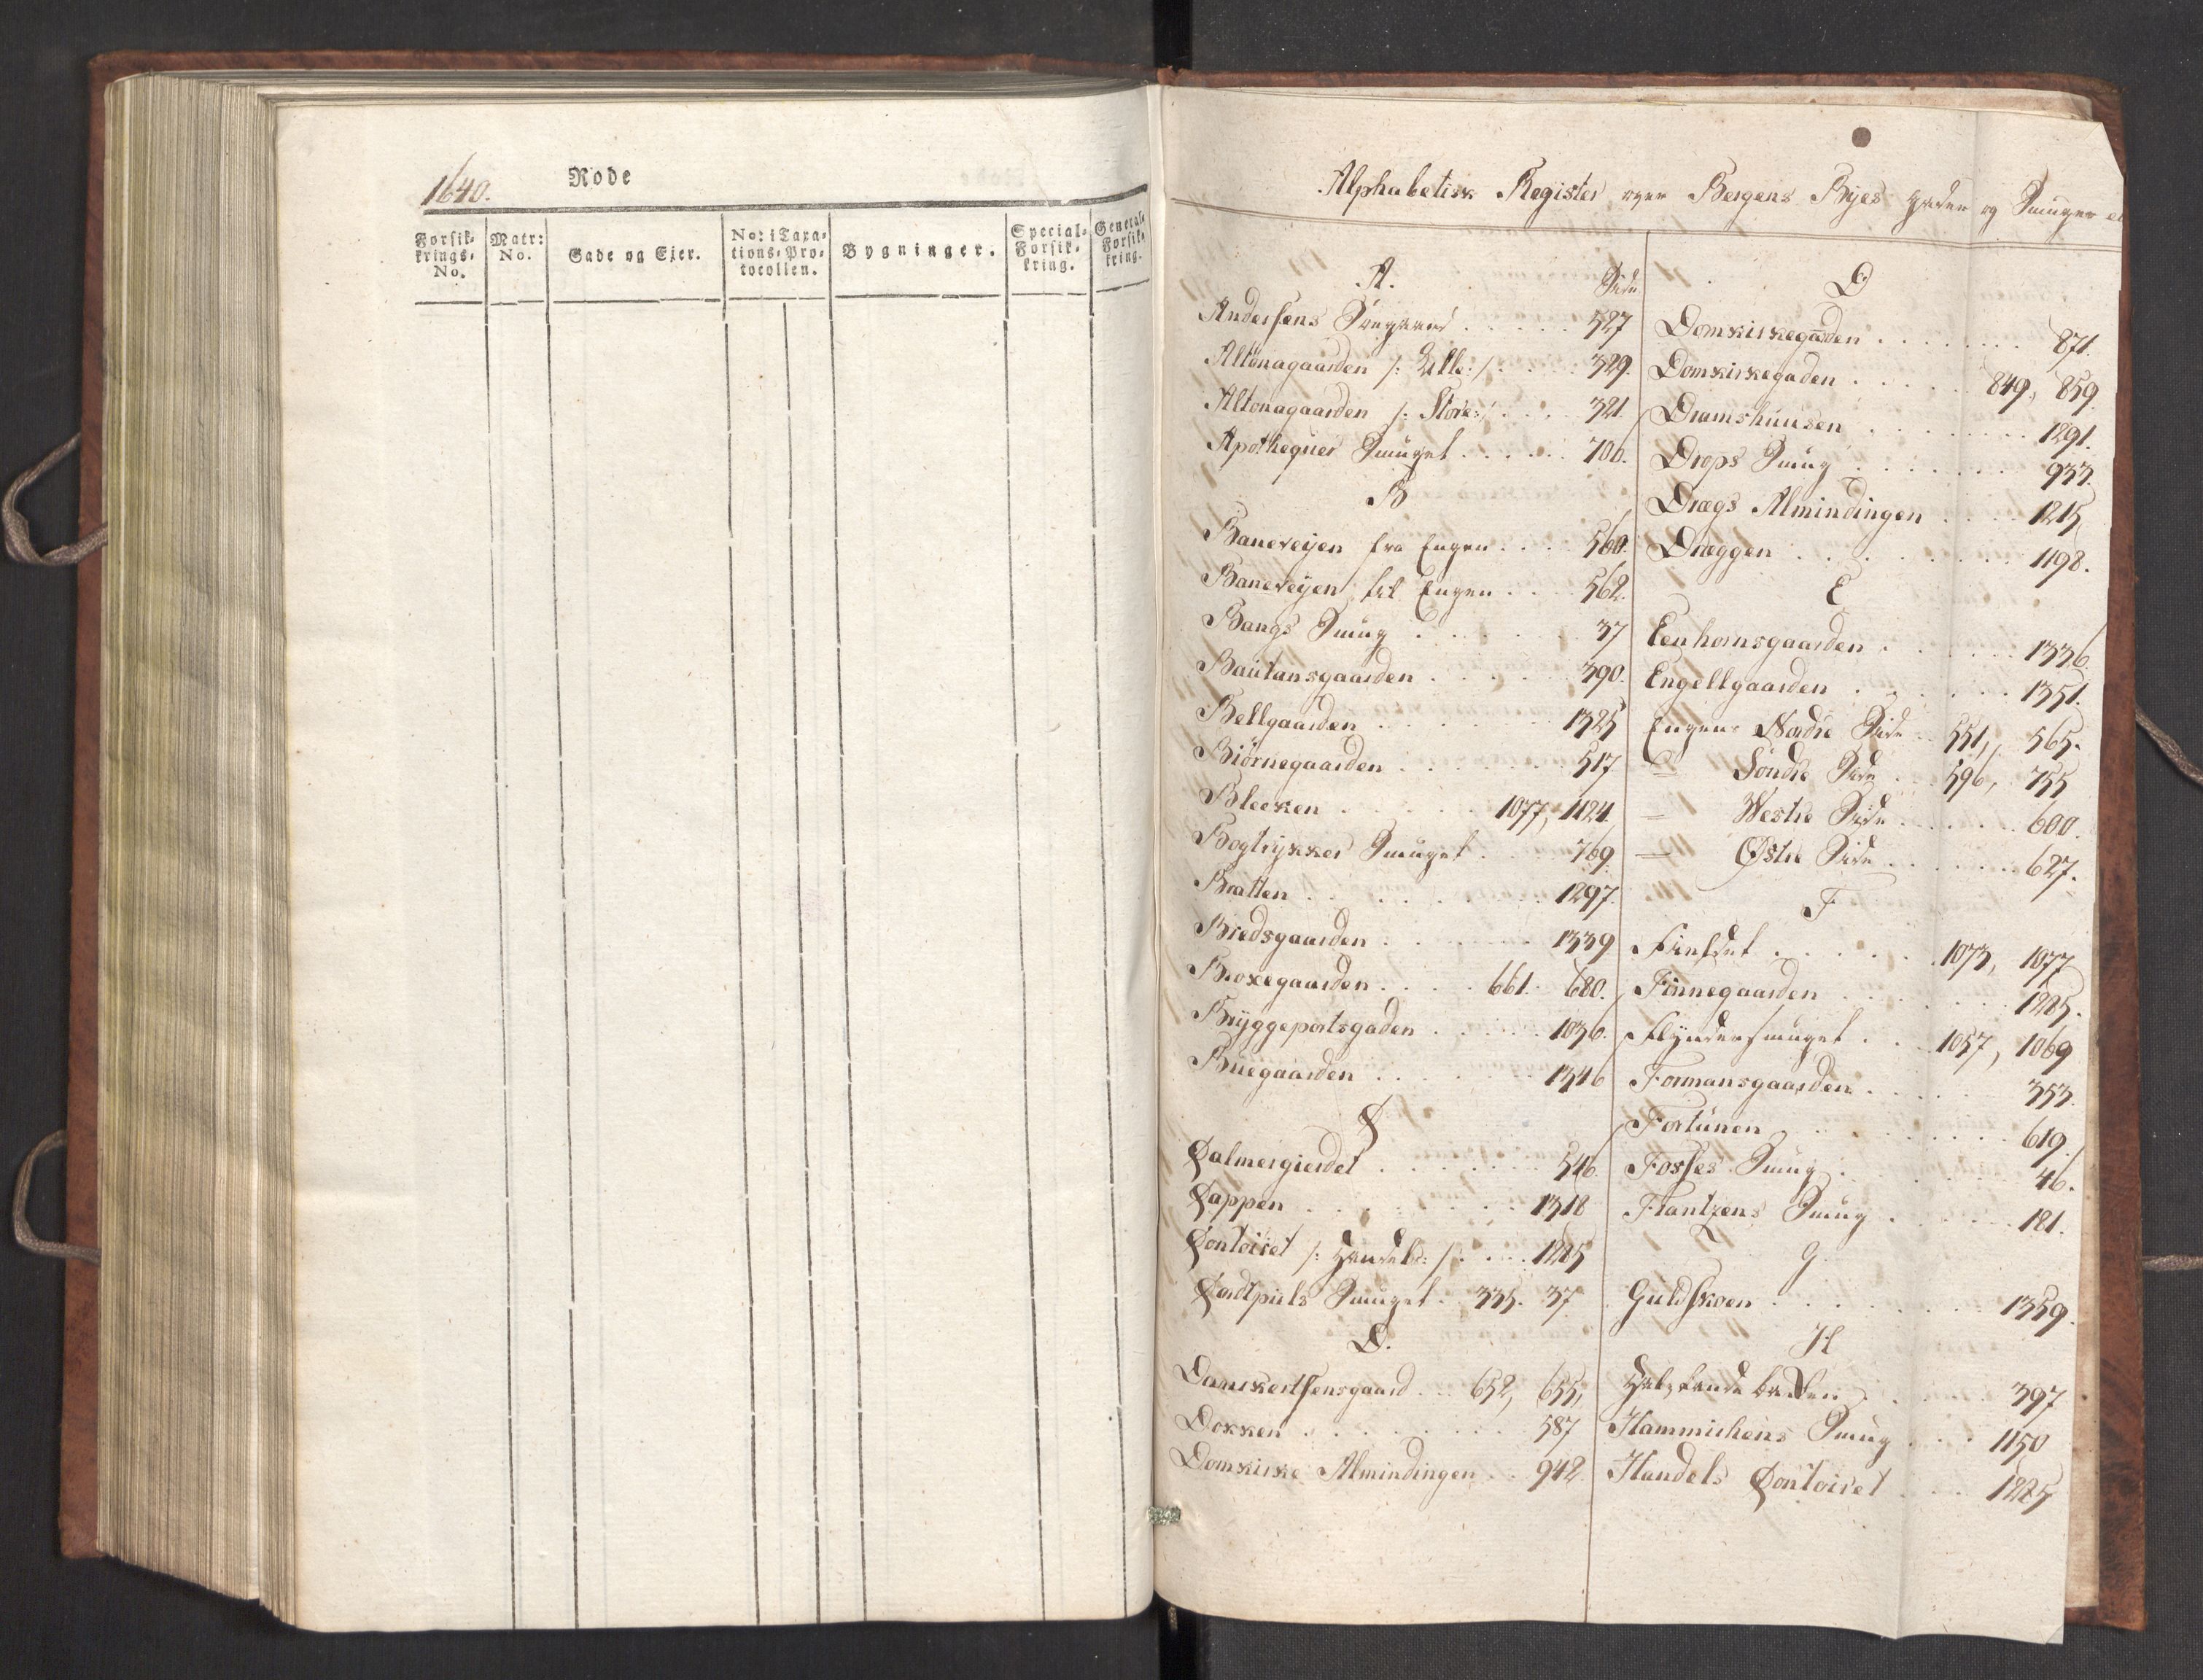 1640.
Rode
Forsik-
krings-
No.
Matr:
No.
Gade og Ejer.
No: i Taxa-
tions-Pro-
tocollen.
Bygninger.
Special-
Forsik-
kring.
General-
Forsik-
kring.
Alphabetisk Register over Bergens Byes Gader og Smuger
A.
Side
Andersens 527
Altonagaarden /: Lille :/ 329.
Altonagaarden /: Store :/ 321.
Apothequer Smuget 706.
B
Baneveijen fra Engen 560.
Baneveijen til Engen 562.
Bangs Smug 37
Bautansgaarden 390.
Bellgaarden 1325
Biörnegaarden 517
Bleeken 1077, 1124.
Bogtrykker Smuget 769.
Bratten 1297.
Bredsgaarden 1339
Broxegaarden 661. 680.
Bryggeportsgaden 1036.
Buegaarden 1346
C
Calmergierdet 546.
Cappen 1318
Contoiret /: Handels: /: 1285
Cortpiils Smuget 335. 37
D.
Danckertsensgaard 652, 655,
Dokken 587
Domkirke Almindingen 942
D
Domkirkegaarden 871.
Domkirkegaden 849, 859.
Dramshuusen 1291.
Drops Smug 933.
Drægs Almindingen 1215,
Dræggen 1198.
E
Eenhornsgaarden 1336.
Engellgaarden 1351.
Engens Nordre Side 551, 565.
— Söndre Side 596, 755
— Westre Side 600.
— Østre Side 627.
F
Fieldet 1073, 1077
Finnegaarden 1285.
Flyndersmuget 1057, 1069
Formansgaarden 353.
Fortunen 619.
Fosses Smug 46.
Frantzens Smug 181.
G
Guldskoen 1359.
H
397
Hammichens Smug 1150
Handels Contoiret 1285